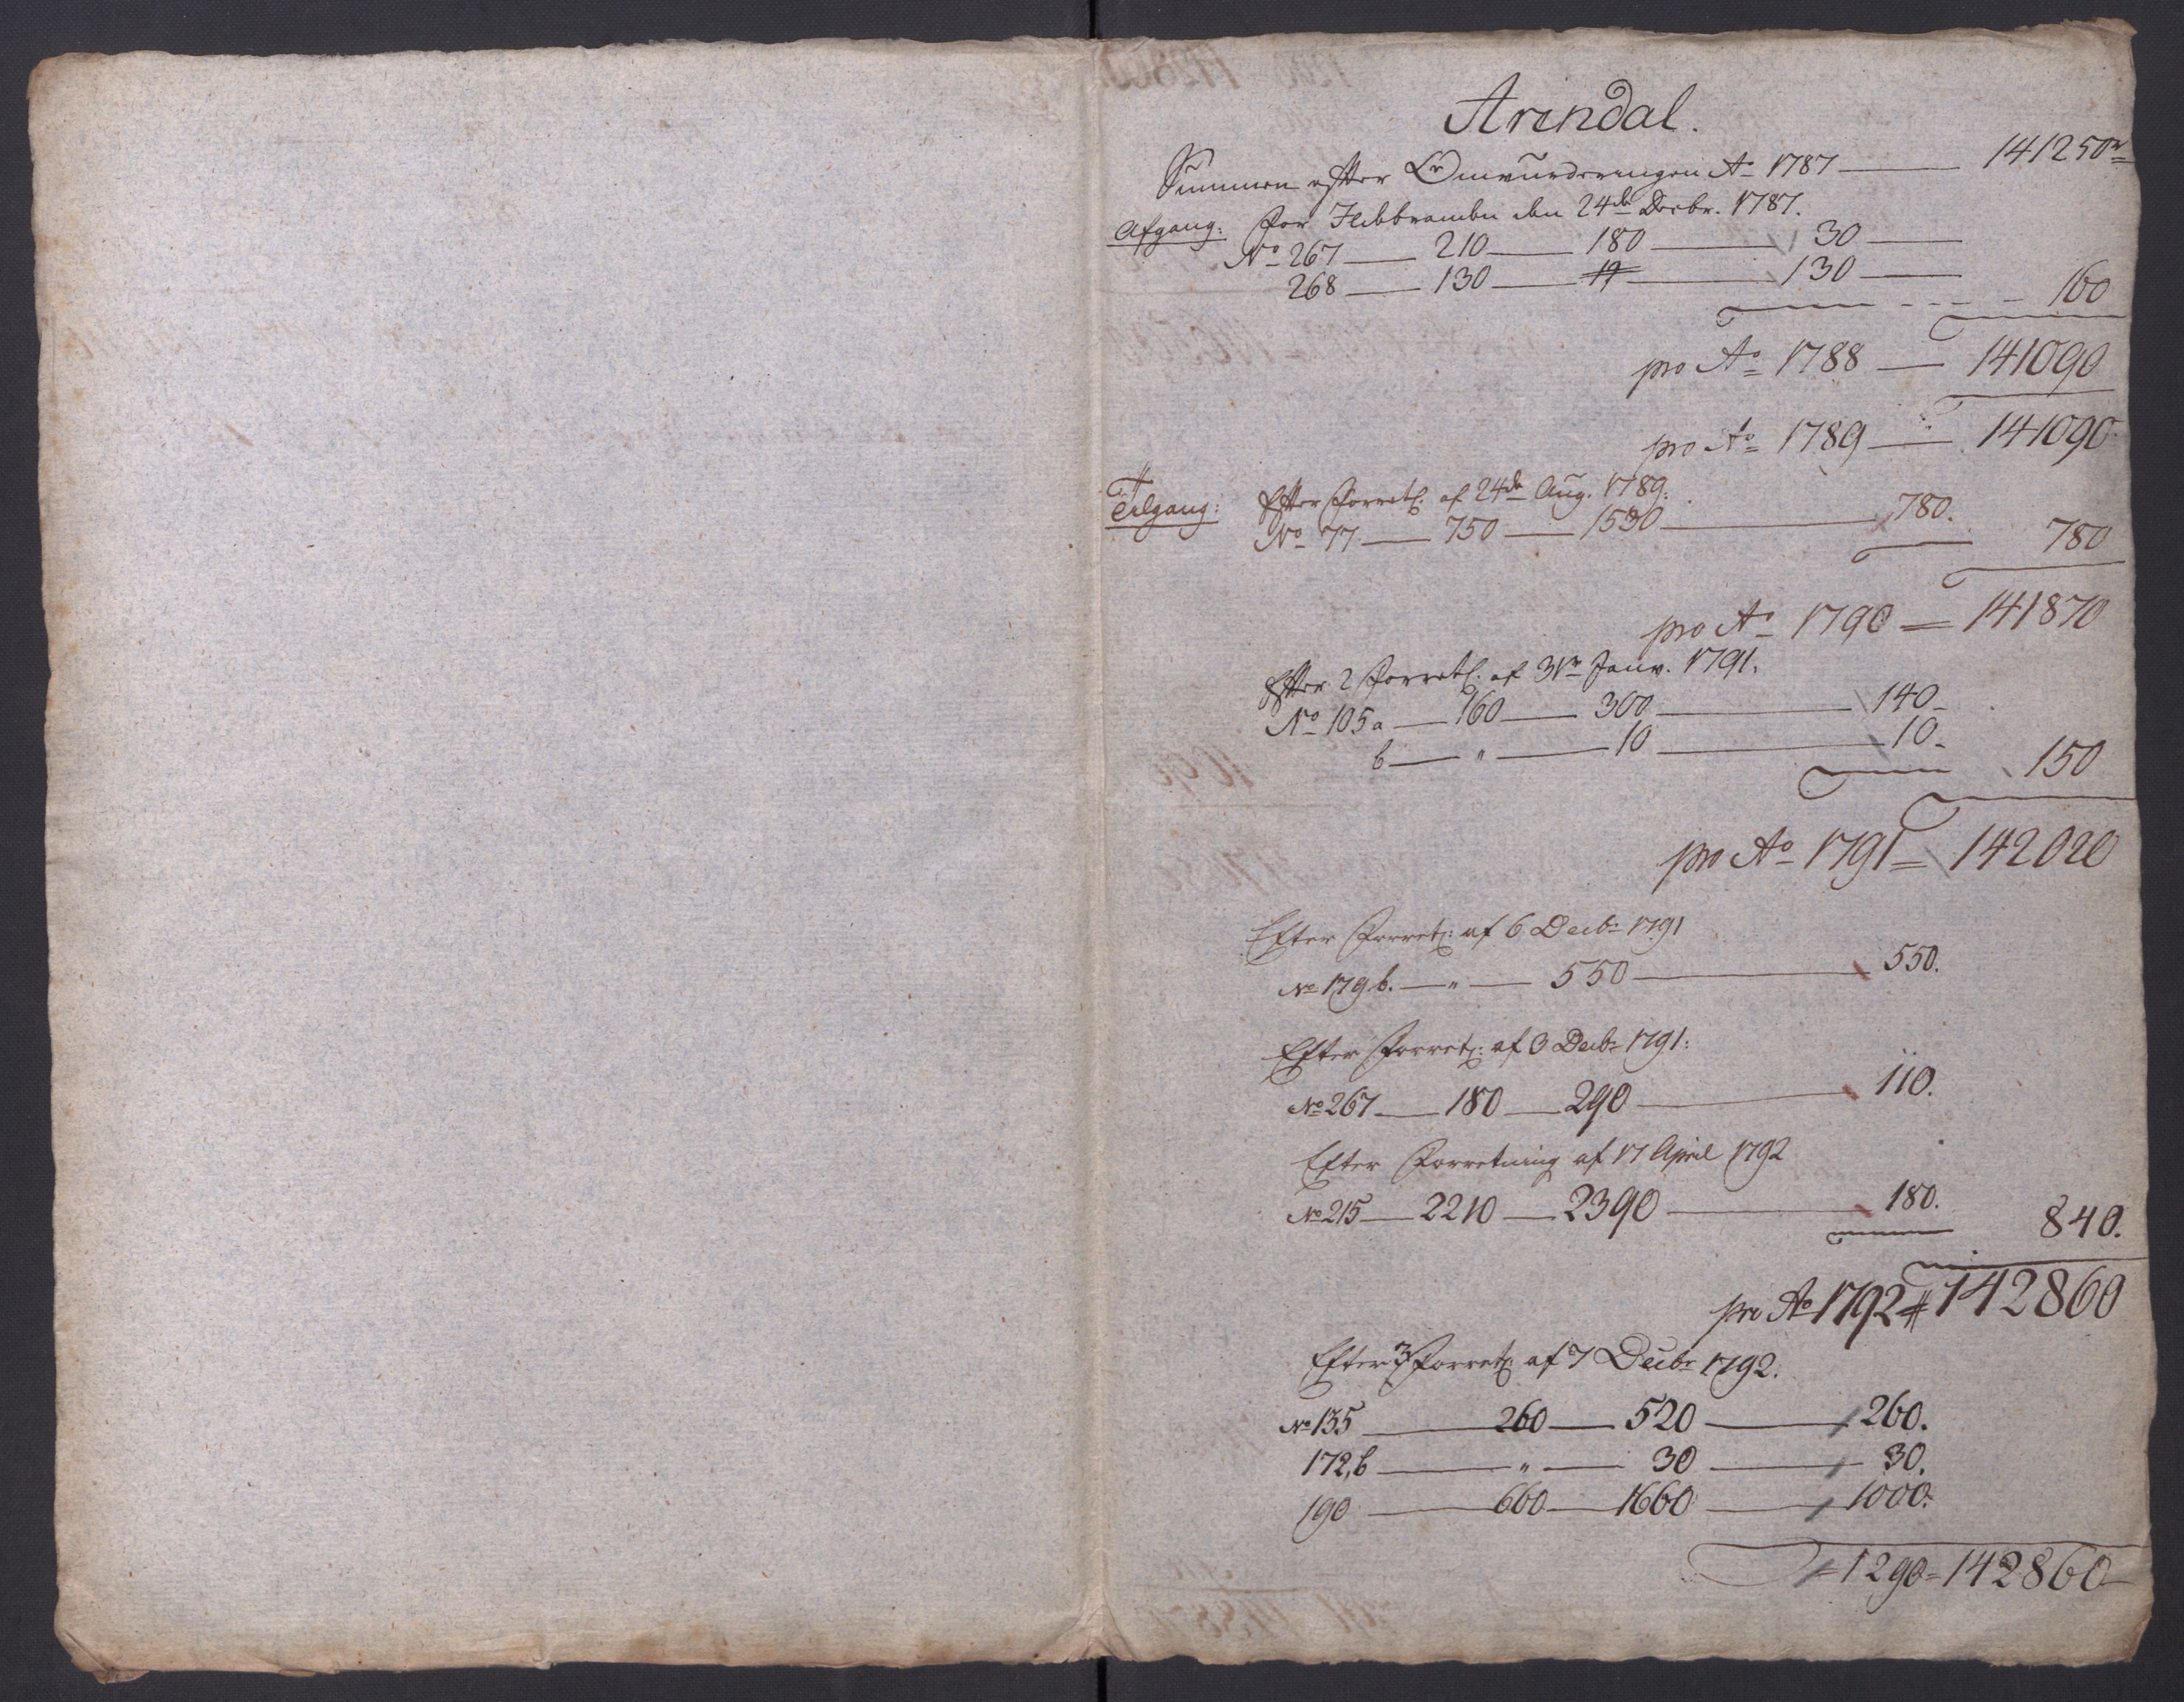 Arendal.
Summen efter Omvurderingen Ao 1787 — 141250 rd
Afgang: For Ildebranden den 24de Decbr. 1787.
No 267 — 210 — 180 — 30 —
268 — 130 — " — 130 —
160
pro Ao 1788 — 141090
pro Ao 1789 — 141090
Tilgang: Efter Forretn. af 24de Aug. 1789.
No 77 — 750 — 1530 — 780.
780
pro Ao 1790 = 141870
Efter 2 Forretn. af 31te Janv. 1791.
No 105 a — 160 — 300 — 140 -
b — " — 10 — 10 -
150
pro Ao 1791 = 142020
Efter Forretn: af 6 Decbr 1791
No 179 b. — " — 550 — 550.
Efter Forretn: af 3 Decbr 1791:
No 267 — 180 — 290 — 110.
Efter Forretning af 17 April 1792
No 215 — 2210 — 2390 — 180.
840.
pro Ao 1792 = 142860
Efter 3 Forretn: af 7 Decbr 1792.
No 135 — 260 — 520 — 260.
172, b — " — 30 — 30.
190 — 660 — 1660 — 1000.
1290 = 142860